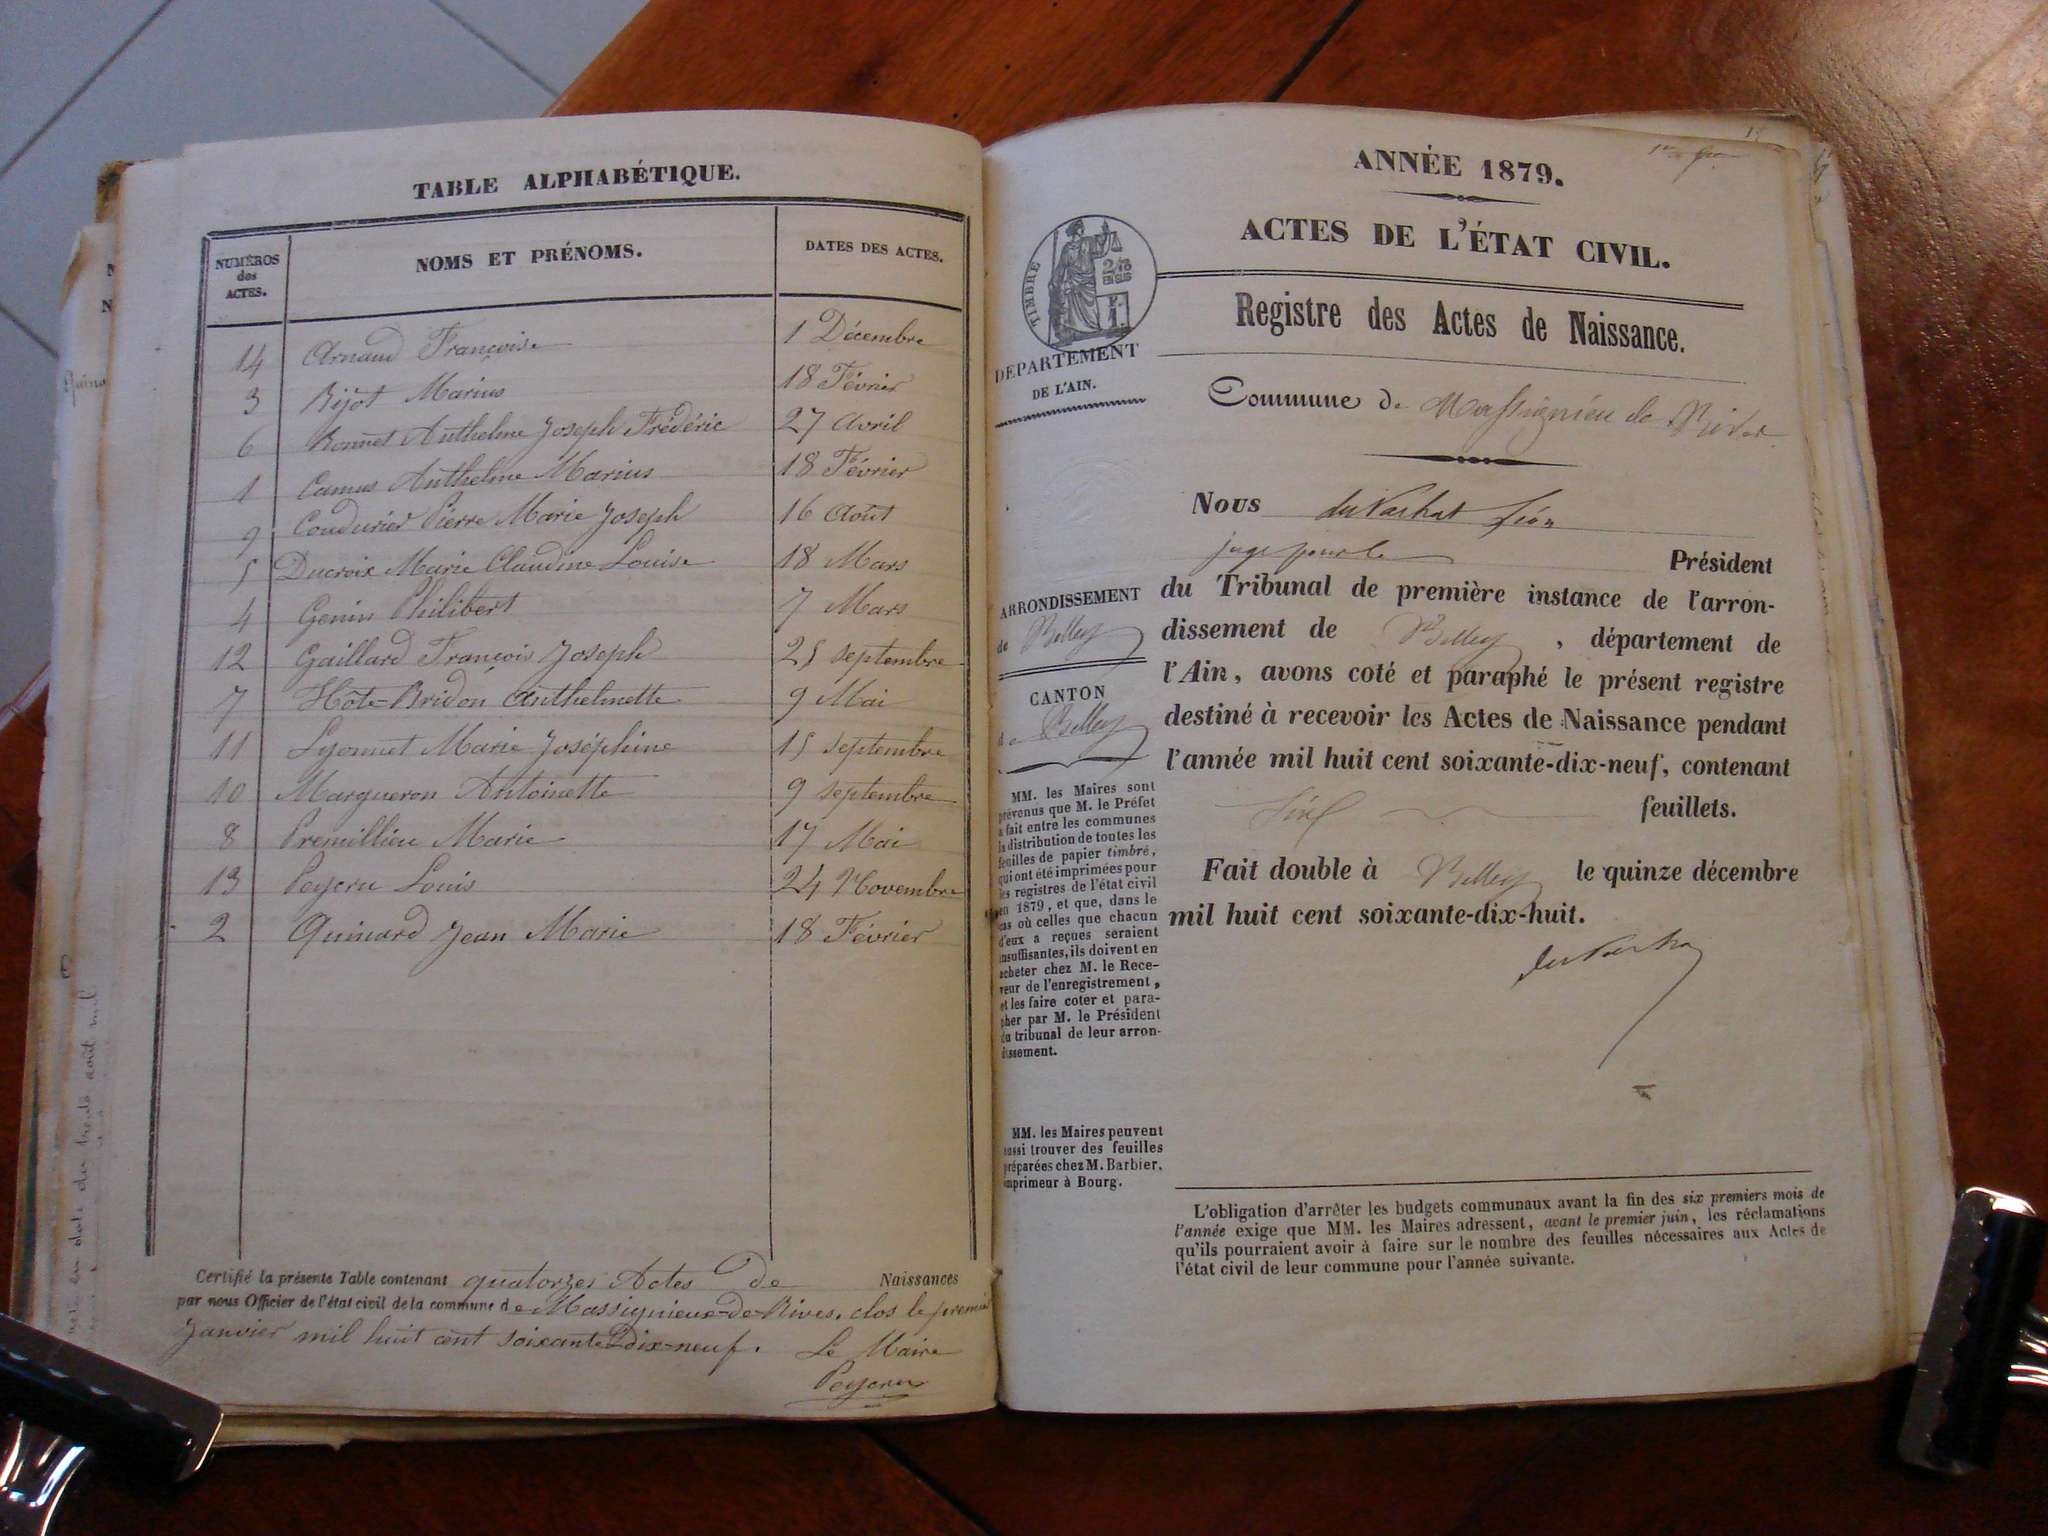 TABLE ALPHABÉTIQUE.
NUMÉROS des ACTES. NOMS ET PRÉNOMS. DATES DES ACTES.
14 Arnaud Françoise 1 Décembre
3 Bijot Marius 18 Février
6 Bonnet Anthelme Joseph Frédéric 27 Avril
1 Camus Anthelme Marius 18 Février
9 Coudurier Pierre Marie Joseph 16 Août
5 Ducroix Marie Claudine Louise 18 Mars
4 Genin Philibert 7 Mars
12 Gaillard François Joseph 25 septembre
7 Hôte-Bridon Anthelmette 9 Mai
11 Lyonnet Marie Joséphine 15 septembre
10 Margueron Antoinette 9 septembre
8 Premillieu Marie 17 Mai
13 Peyeru Louis 24 Novembre
2 Quinard Jean Marie 18 Février
Certifié la présente Table contenant quatorzes Actes de Naissances
par nous Officier de l'état civil de la commune de Massignieux-de-Rives, clos le premier
Janvier mil huit cent soixante dix-neuf. Le Maire
Peyeru
ANNÉE 1879.
ACTES DE L'ÉTAT CIVIL.
Registre des Actes de Naissance.
TIMBRE
DEPARTEMENT
DE L'AIN.
Commune de Massignieu de Rives
Nous du Vachat Léon
juge pour le Président
du Tribunal de première instance de l'arron-
dissement de Belley, département de
l'Ain, avons coté et paraphé le présent registre
destiné à recevoir les Actes de Naissance pendant
l'année mil huit cent soixante-dix-neuf, contenant
feuillets.
Fait double à Belley le quinze décembre
mil huit cent soixante-dix-huit.
ARRONDISSEMENT
de Belley
CANTON
de Belley
MM. les Maires sont
prévenus que M. le Préfet
a fait entre les communes
la distribution de toutes les
feuilles de papier timbré,
qui ont été imprimées pour
les registres de l'état civil
en 1879, et que, dans le
cas où celles que chacun
d'eux a reçues seraient
insuffisantes, ils doivent en
acheter chez M. le Rece-
veur de l'enregistrement,
et les faire coter et para-
pher par M. le Président
du tribunal de leur arron-
dissement.
MM. les Maires peuvent
aussi trouver des feuilles
préparées chez M. Barbier,
imprimeur à Bourg.
L'obligation d'arrêter les budgets communaux avant la fin des six premiers mois de
l'année exige que MM. les Maires adressent, avant le premier juin, les réclamations
qu'ils pourraient avoir à faire sur le nombre des feuilles nécessaires aux Actes de
l'état civil de leur commune pour l'année suivante.